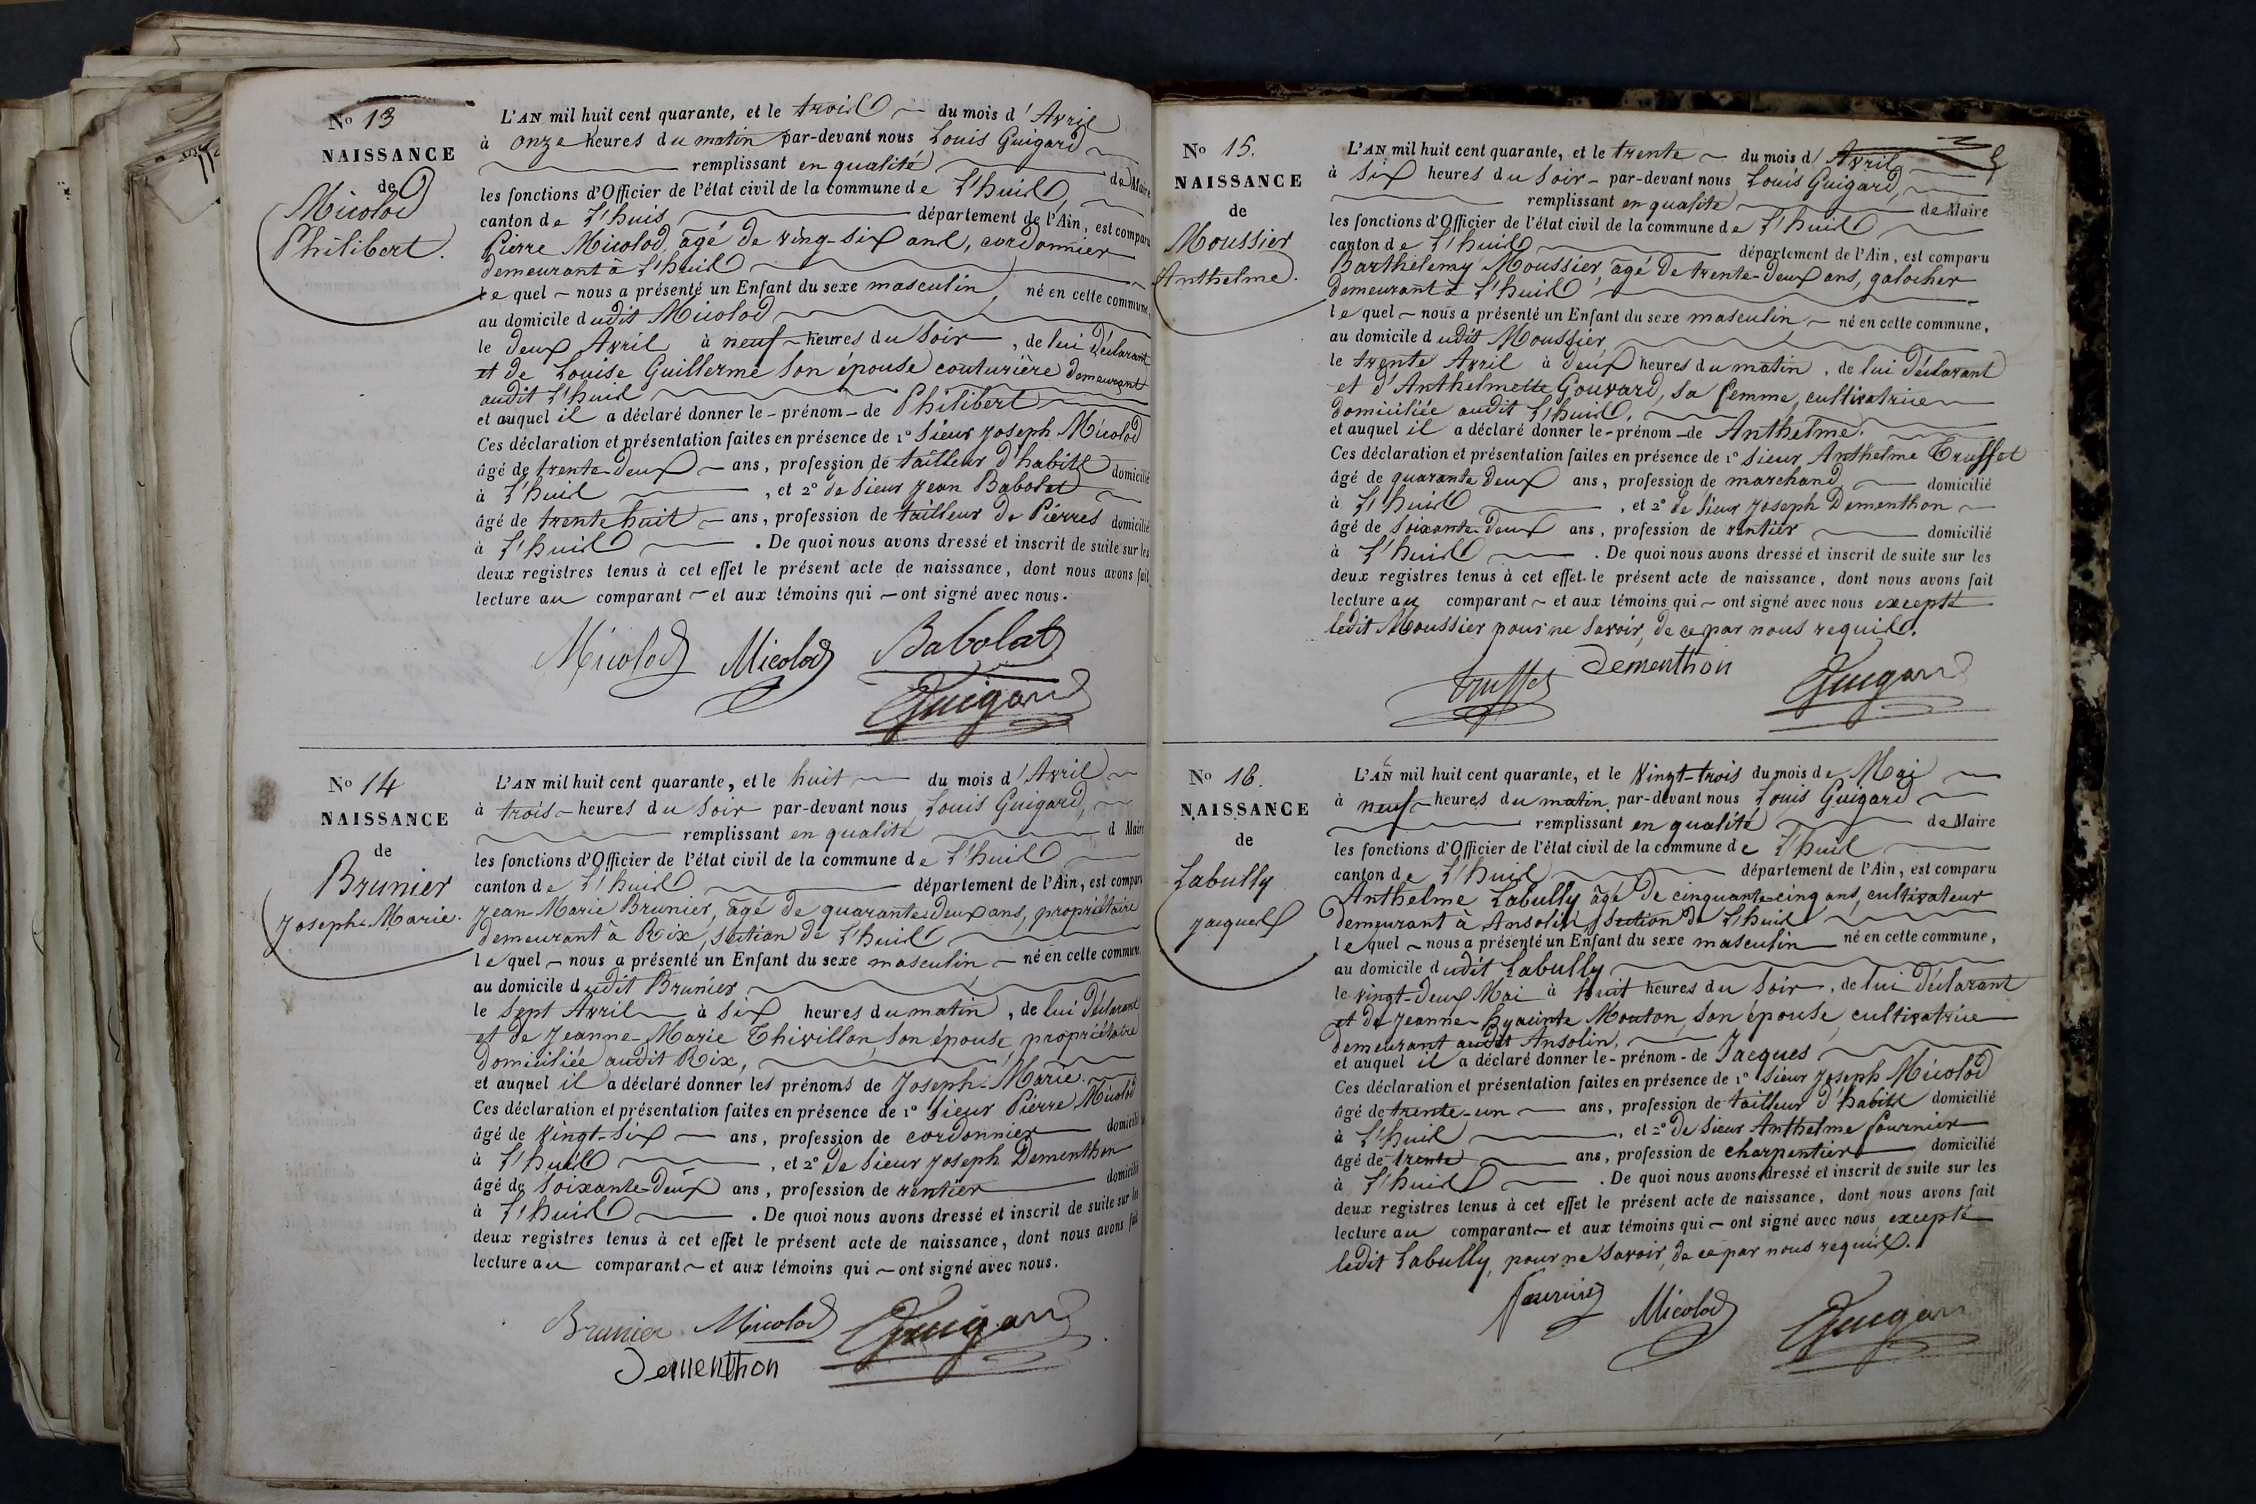 No 13
NAISSANCE
de
Micolod
Philibert.
L'AN mil huit cent quarante, et le trois du mois d'Avril
à onze heures du matin par-devant nous Louis Guigard
remplissant en qualité de Maire
les fonctions d'Officier de l'état civil de la commune de L'huis
canton de L'huis département de l'Ain, est comparu
Pierre Micolod, âgé de vingt-six ans, cordonnier
demeurant à L'huis
lequel nous a présenté un Enfant du sexe masculin, né en cette commune,
au domicile dudit Micolod
le deux Avril à neuf heures du Soir, de lui déclarant
et de Louise Guillerme son épouse couturière demeurant
audit L'huis
et auquel il a déclaré donner le prénom de Philibert
Ces déclaration et présentation faites en présence de 1o Sieur Joseph Micolod
âgé de trente-deux ans, profession de tailleur d'habits domicilié
à L'huis, et 2o de Sieur Jean Babolat
âgé de trente huit ans, profession de tailleur de Pierres domicilié
à L'huis. De quoi nous avons dressé et inscrit de suite sur les
deux registres tenus à cet effet le présent acte de naissance, dont nous avons fait
lecture au comparant et aux témoins qui ont signé avec nous.
Micolod Micolod Babolat
Guigard
No 14
NAISSANCE
de
Brunier
Joseph-Marie.
L'AN mil huit cent quarante, et le huit du mois d'Avril
à trois heures du Soir par-devant nous Louis Guigard,
remplissant en qualité d Maire
les fonctions d'Officier de l'état civil de la commune de L'huis
canton de L'huis département de l'Ain, est comparu
Jean-Marie Brunier, âgé de quarante-deux ans, propriétaire
demeurant à Rix, section de L'huis
lequel nous a présenté un Enfant du sexe masculin né en cette commune,
au domicile dudit Brunier
le Sept Avril à six heures du matin, de lui déclarant
et de Jeanne-Marie Thivillon, son épouse, propriétaire
domiciliée audit Rix,
et auquel il a déclaré donner les prénoms de Joseph-Marie.
Ces déclaration et présentation faites en présence de 1o Sieur Pierre Micolod
âgé de vingt-six ans, profession de cordonnier domicilié
à L'huis, et 2o de Sieur Joseph Dementhon
âgé de Soixante-Deux ans, profession de rentier domicilié
à L'huis. De quoi nous avons dressé et inscrit de suite sur les
deux registres tenus à cet effet le présent acte de naissance, dont nous avons fait
lecture au comparant et aux témoins qui ont signé avec nous.
Brunier Micolod Guigard
Dementhon
No 15.
NAISSANCE
de
Moussier
Anthelme.
L'AN mil huit cent quarante, et le trente du mois d'Avril
à six heures du Soir par-devant nous Louis Guigard,
remplissant en qualité de Maire
les fonctions d'Officier de l'état civil de la commune de L'huis
canton de L'huis département de l'Ain, est comparu
Barthélemy Moussier, âgé de trente-deux ans, galocher
demeurant à L'huis
lequel nous a présenté un Enfant du sexe masculin né en cette commune,
au domicile dudit Moussier
le trente Avril à deux heures du matin, de lui déclarant
et d'Anthelmette Gouvard, sa femme, cultivatrice
domiciliée audit L'huis.
et auquel il a déclaré donner le prénom de Anthelme.
Ces déclaration et présentation faites en présence de 1o Sieur Anthelme Truffet
âgé de quarante deux ans, profession de marchand domicilié
à L'huis, et 2o de Sieur Joseph Dementhon
âgé de Soixante-Deux ans, profession de rentier domicilié
à L'huis. De quoi nous avons dressé et inscrit de suite sur les
deux registres tenus à cet effet le présent acte de naissance, dont nous avons fait
lecture au comparant et aux témoins qui ont signé avec nous excepté
ledit Moussier pour ne Savoir, de ce par nous requis.
Truffet Dementhon Guigard
No 16.
NAISSANCE
de
Labully
Jacques
L'AN mil huit cent quarante, et le Vingt-trois du mois de Mai
à neuf heures du matin par-devant nous Louis Guigard
remplissant en qualité de Maire
les fonctions d'Officier de l'état civil de la commune de L'huis
canton de L'huis département de l'Ain, est comparu
Anthelme Labully âgé de cinquante-cinq ans, cultivateur
demeurant à Ansolin section de L'huis
lequel nous a présenté un Enfant du sexe masculin né en cette commune,
au domicile dudit Labully
le vingt-deux Mai à huit heures du Soir, de lui déclarant
et de Jeanne-Hyacinte Mouton, son épouse, cultivatrice
demeurant audit Ansolin.
et auquel il a déclaré donner le prénom de Jacques
Ces déclaration et présentation faites en présence de 1o Sieur Joseph Micolod
âgé de trente-un ans, profession de tailleur d'habits domicilié
à L'huis, et 2o de Sieur Anthelme fournier
âgé de trente ans, profession de charpentier domicilié
à L'huis. De quoi nous avons dressé et inscrit de suite sur les
deux registres tenus à cet effet le présent acte de naissance, dont nous avons fait
lecture au comparant et aux témoins qui ont signé avec nous excepté
ledit Labully, pour ne Savoir, de ce par nous requis.
fournier Micolod Guigard